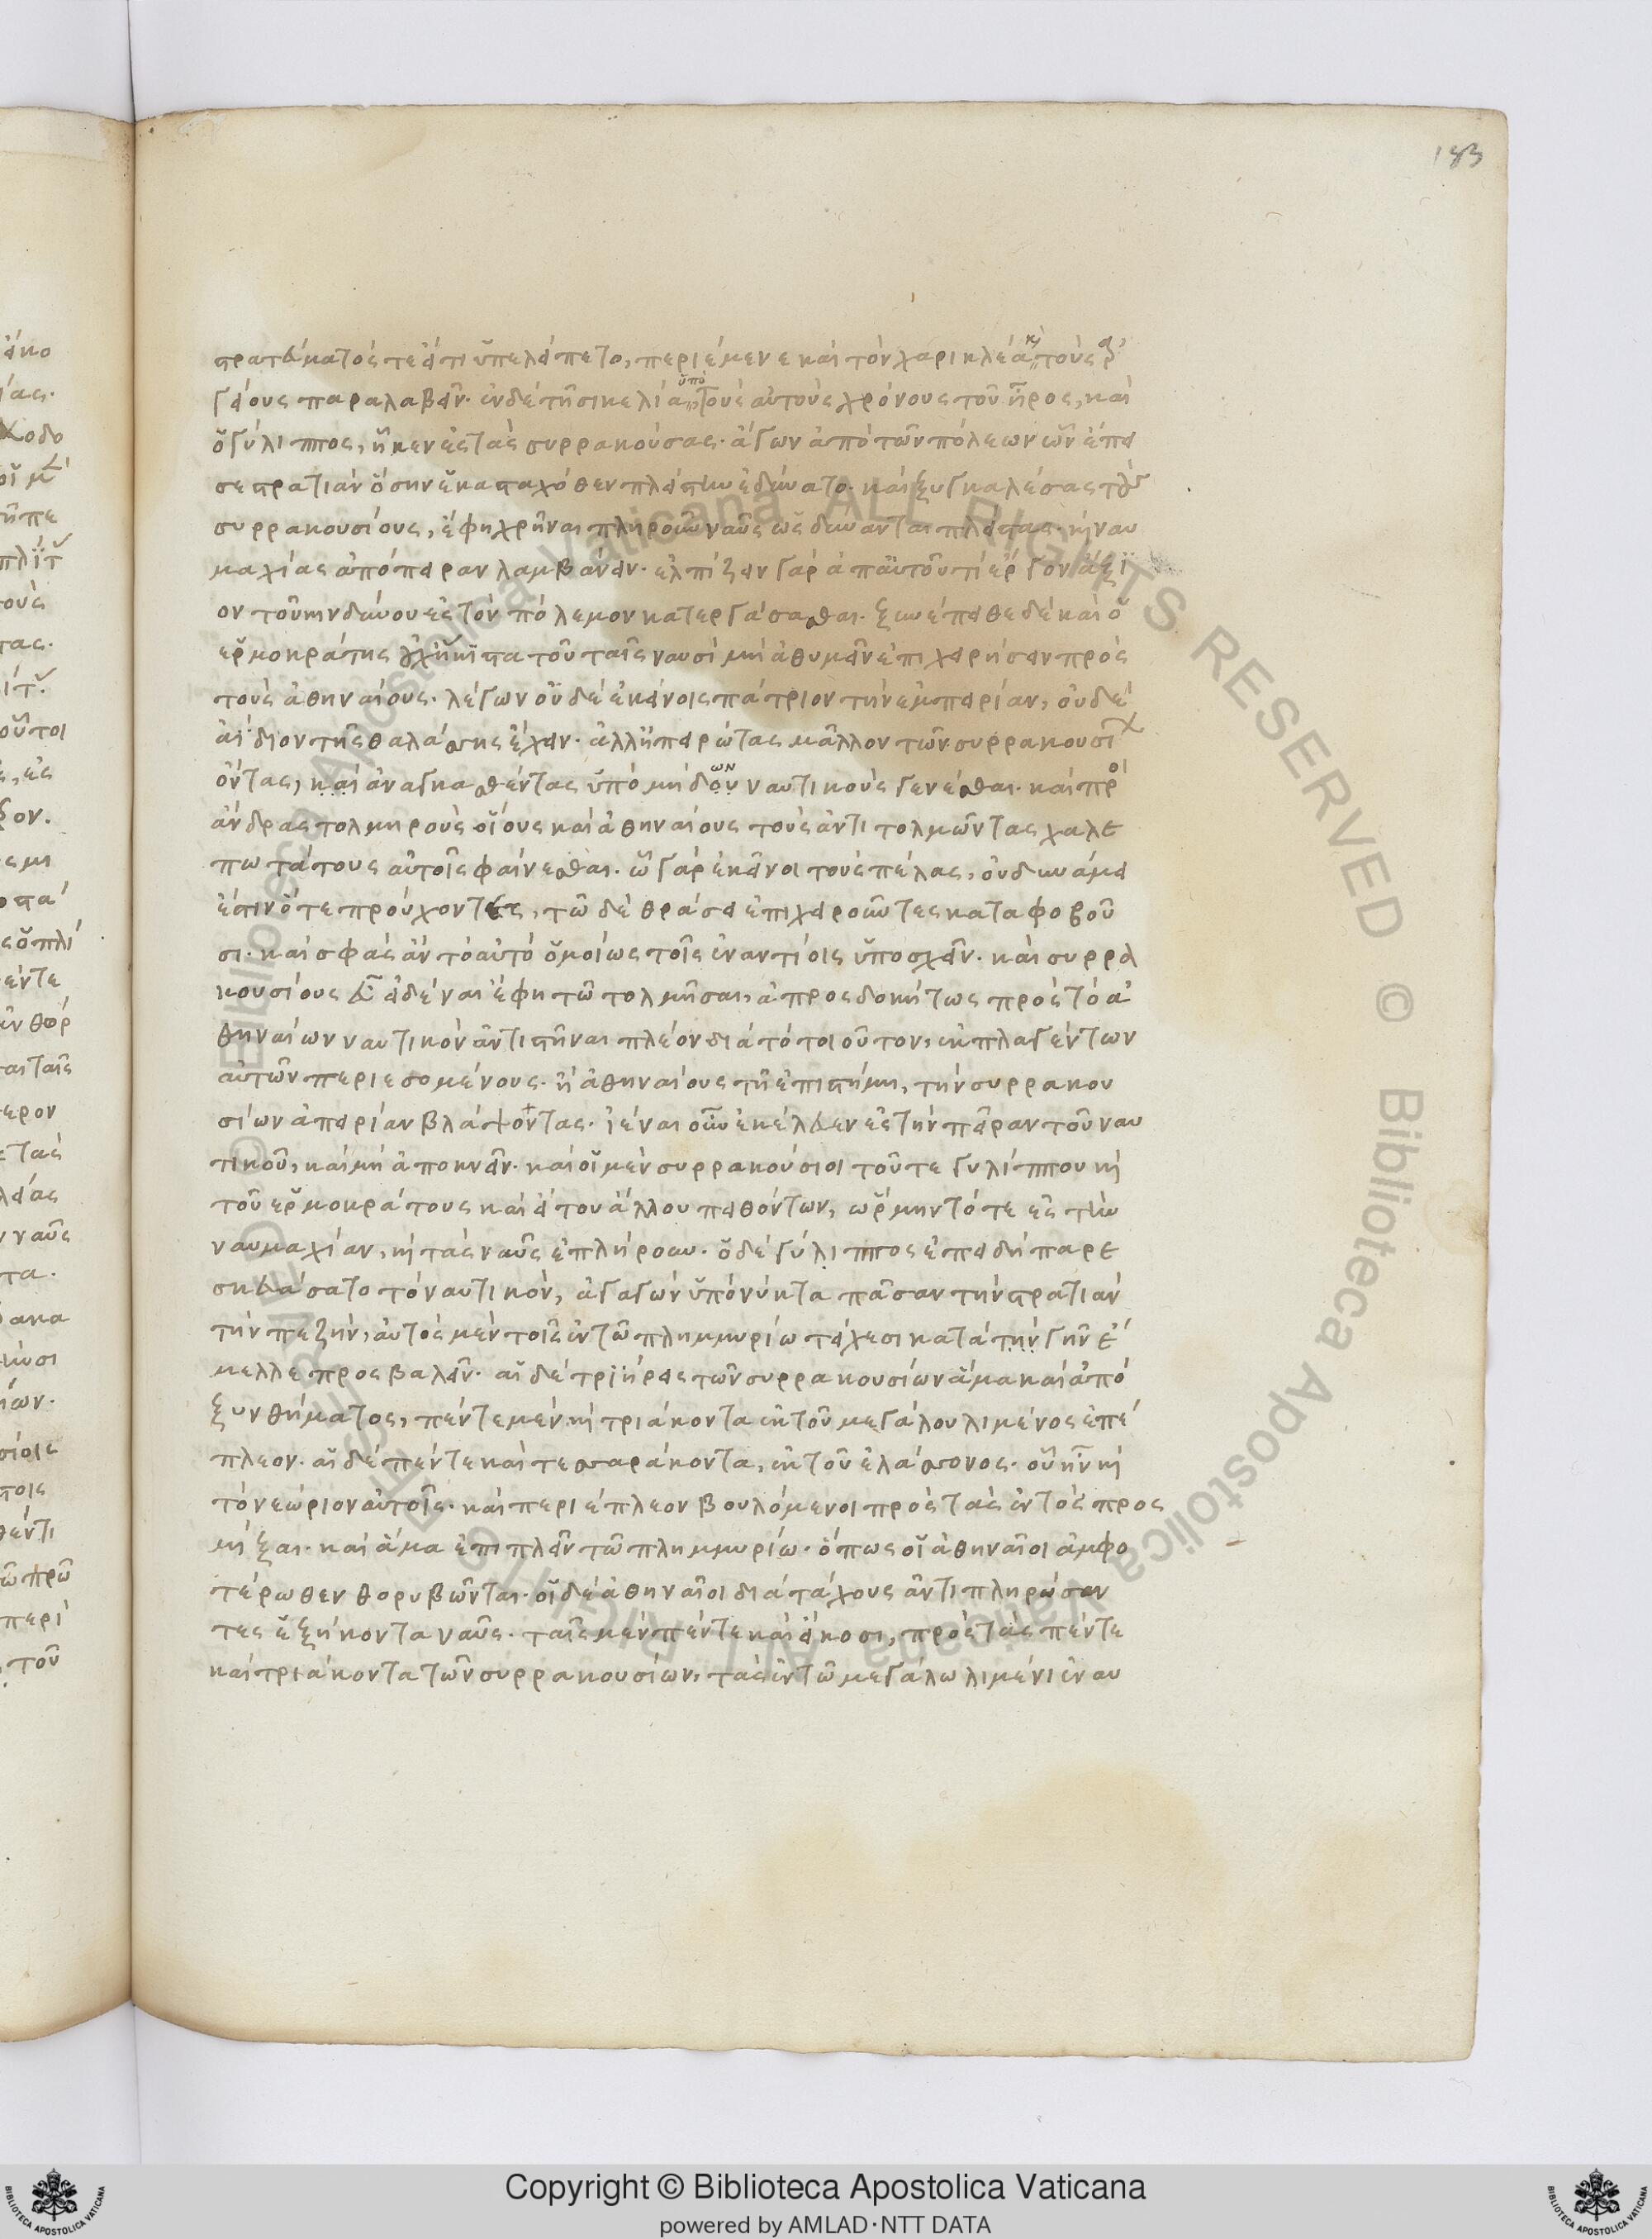 183
στρατεύματός τε εἴ τι ὑπελείπετο, περιέμενε καὶ τὸν χαρικλέα κ τοὺς ἀρ
γείους παραλαβεῖν. ἐν δὲ τῆ σικελία ὑπὸ τοὺς αὐτοὺς χρόνους τοῦ ἦρος, καὶ
ὁ γύλιππος, ἧκεν ἐς τὰς συρρακούσας. ἄγων ἀπὸ τῶν πόλεων ὧν ἔπει
σε στρατιὰν ὅσην ἑκασταχόθεν πλείστην ἐδύνατο. καὶ ξυγκαλέσας τοὺς
συρρακουσίους, ἔφη χρῆναι πληροῦν ναῦς ὡς δύνανται πλείστας. κ ναυ
μαχίας ἀπόπειραν λαμβάνειν. ἐλπίζειν γὰρ ἀπ' αὐτοῦ τὶ ἔργον ἄξι
ον τοῦ κινδύνου ἐς τὸν πόλεμον κατεργάσασθαι. ξυνέπειθε δὲ καὶ ὁ
ἑρμοκράτης οὐχ ἥκιστα τοῦ ταῖς ναυσὶ μὴ ἀθυμεῖν ἐπιχειρήσειν πρὸς
τοὺς ἀθηναίους. λέγων οὐδὲ ἐκείνοις πάτριον τὴν ἐμπειρίαν, οὐδὲ
ἀίδιον τῆς θαλάσσης ἔχειν. ἀλλ' ἠπειρώτας μᾶλλον τῶν συρρακουσί
ὄντας, καὶ ἀναγκασθέντας ὑπὸ μήδων ναυτικοὺς γενέσθαι. καὶ πρὸς
ἄνδρας τολμηροὺς οἵους καὶ ἀθηναίους τοὺς ἀντιτολμῶντας χαλε
πωτάτους αὐτοῖς φαίνεσθαι. ὧ γὰρ ἐκεῖνοι τοὺς πέλας, οὐ δυνάμει
ἔστιν ὅτε προύχοντες, τῶ δὲ θράσει ἐπιχειροῦντες καταφοβοῦ
σι. καὶ σφᾶς ἂν τὸ αὐτὸ ὁμοίως τοῖς ἐναντίοις ὑποσχεῖν. καὶ συρρα
κουσίους εὖ εἰδέναι ἔφη τῶ τολμῆσαι, ἀπροσδοκήτως πρὸς τὸ ἀ
θηναίων ναυτικὸν ἀντιστῆναι πλέον διὰ τὸ τοιοῦτον, ἐκπλαγέντων
αὐτῶν περιεσομένους. ἢ ἀθηναίους τῆ ἐπιστήμη, τὴν συρρακου
σίων ἀπειρίαν βλάψοντας. ἰέναι οὖν ἐκέλευεν ἐς τὴν πεῖραν τοῦ ναυ
τικοῦ, καὶ μὴ ἀποκνεῖν. καὶ οἱ μὲν συρρακούσιοι τοῦ τε γυλίππου κ
τοῦ ἑρμοκράτους καὶ εἴ του ἄλλου πειθόντων, ὥρμηντό τε ἐς τὴν
ναυμαχίαν, κ τὰς ναῦς ἐπλήρουν. ὁ δὲ γύλιππος ἐπειδὴ παρε
σκευάσατο τὸ ναυτικόν, ἀγαγὼν ὑπὸ νύκτα πᾶσαν τὴν στρατιὰν
τὴν πεζήν, αὐτὸς μὲν τοῖς ἐν τῶ πλημμυρίω τείχεσι κατὰ τὴν γῆν ἔ
μελλε προσβαλεῖν. αἱ δὲ τριήρεις τῶν συρρακουσίων ἅμα καὶ ἀπὸ
ξυνθήματος, πέντε μὲν κ τριάκοντα ἐκ τοῦ μεγάλου λιμένος ἐπέ
πλεον. αἱ δὲ πέντε καὶ τεσσαράκοντα, ἐκ τοῦ ἐλάσσονος. οὗ ἦν κ
τὸ νεώριον αὐτοῖς. καὶ περιέπλεον βουλόμενοι πρὸς τὰς ἐντὸς προς
μίξαι. καὶ ἅμα ἐπιπλεῖν τῶ πλημμυρίω. ὅπως οἱ ἀθηναῖοι ἀμφο
τέρωθεν θορυβῶνται. οἱ δὲ ἀθηναῖοι διὰ τάχους ἀντιπληρώσαν
τες ἑξήκοντα ναῦς. ταῖς μὲν πέντε καὶ εἴκοσι, πρὸς τὰς πέντε
καὶ τριάκοντα τῶν συρρακουσίων, τὰς ἐν τῶ μεγάλω λιμένι ἐναυ
Copyright © Biblioteca Apostolica Vaticana
powered by AMLAD·NTT DATA